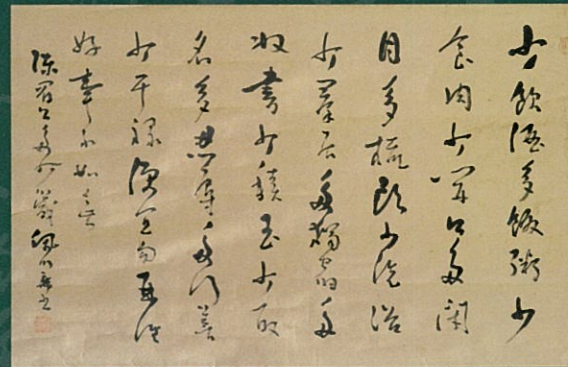 少飲酒多餟粥少
食肉少開口多閉
目多梳頭少洗浴
少羣居多獨宿多
收書少積玉少取
名多忍辱多行善
少干祿便宜勿再往
好事不如無
陳眉公多少箴